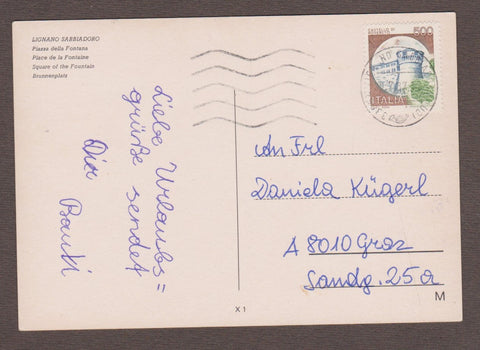 LIGNANO SABBIADORO
Piazza della Fontana
Place de la Fontaine
Square of the Fountain
Brunnenplatz
Liebe Urlaubs=
grüße sendet
Dir
500
ITALIA
An Frl
Daniela Kügerl
A 8010 Graz
Sandg. 25a
X 1
M